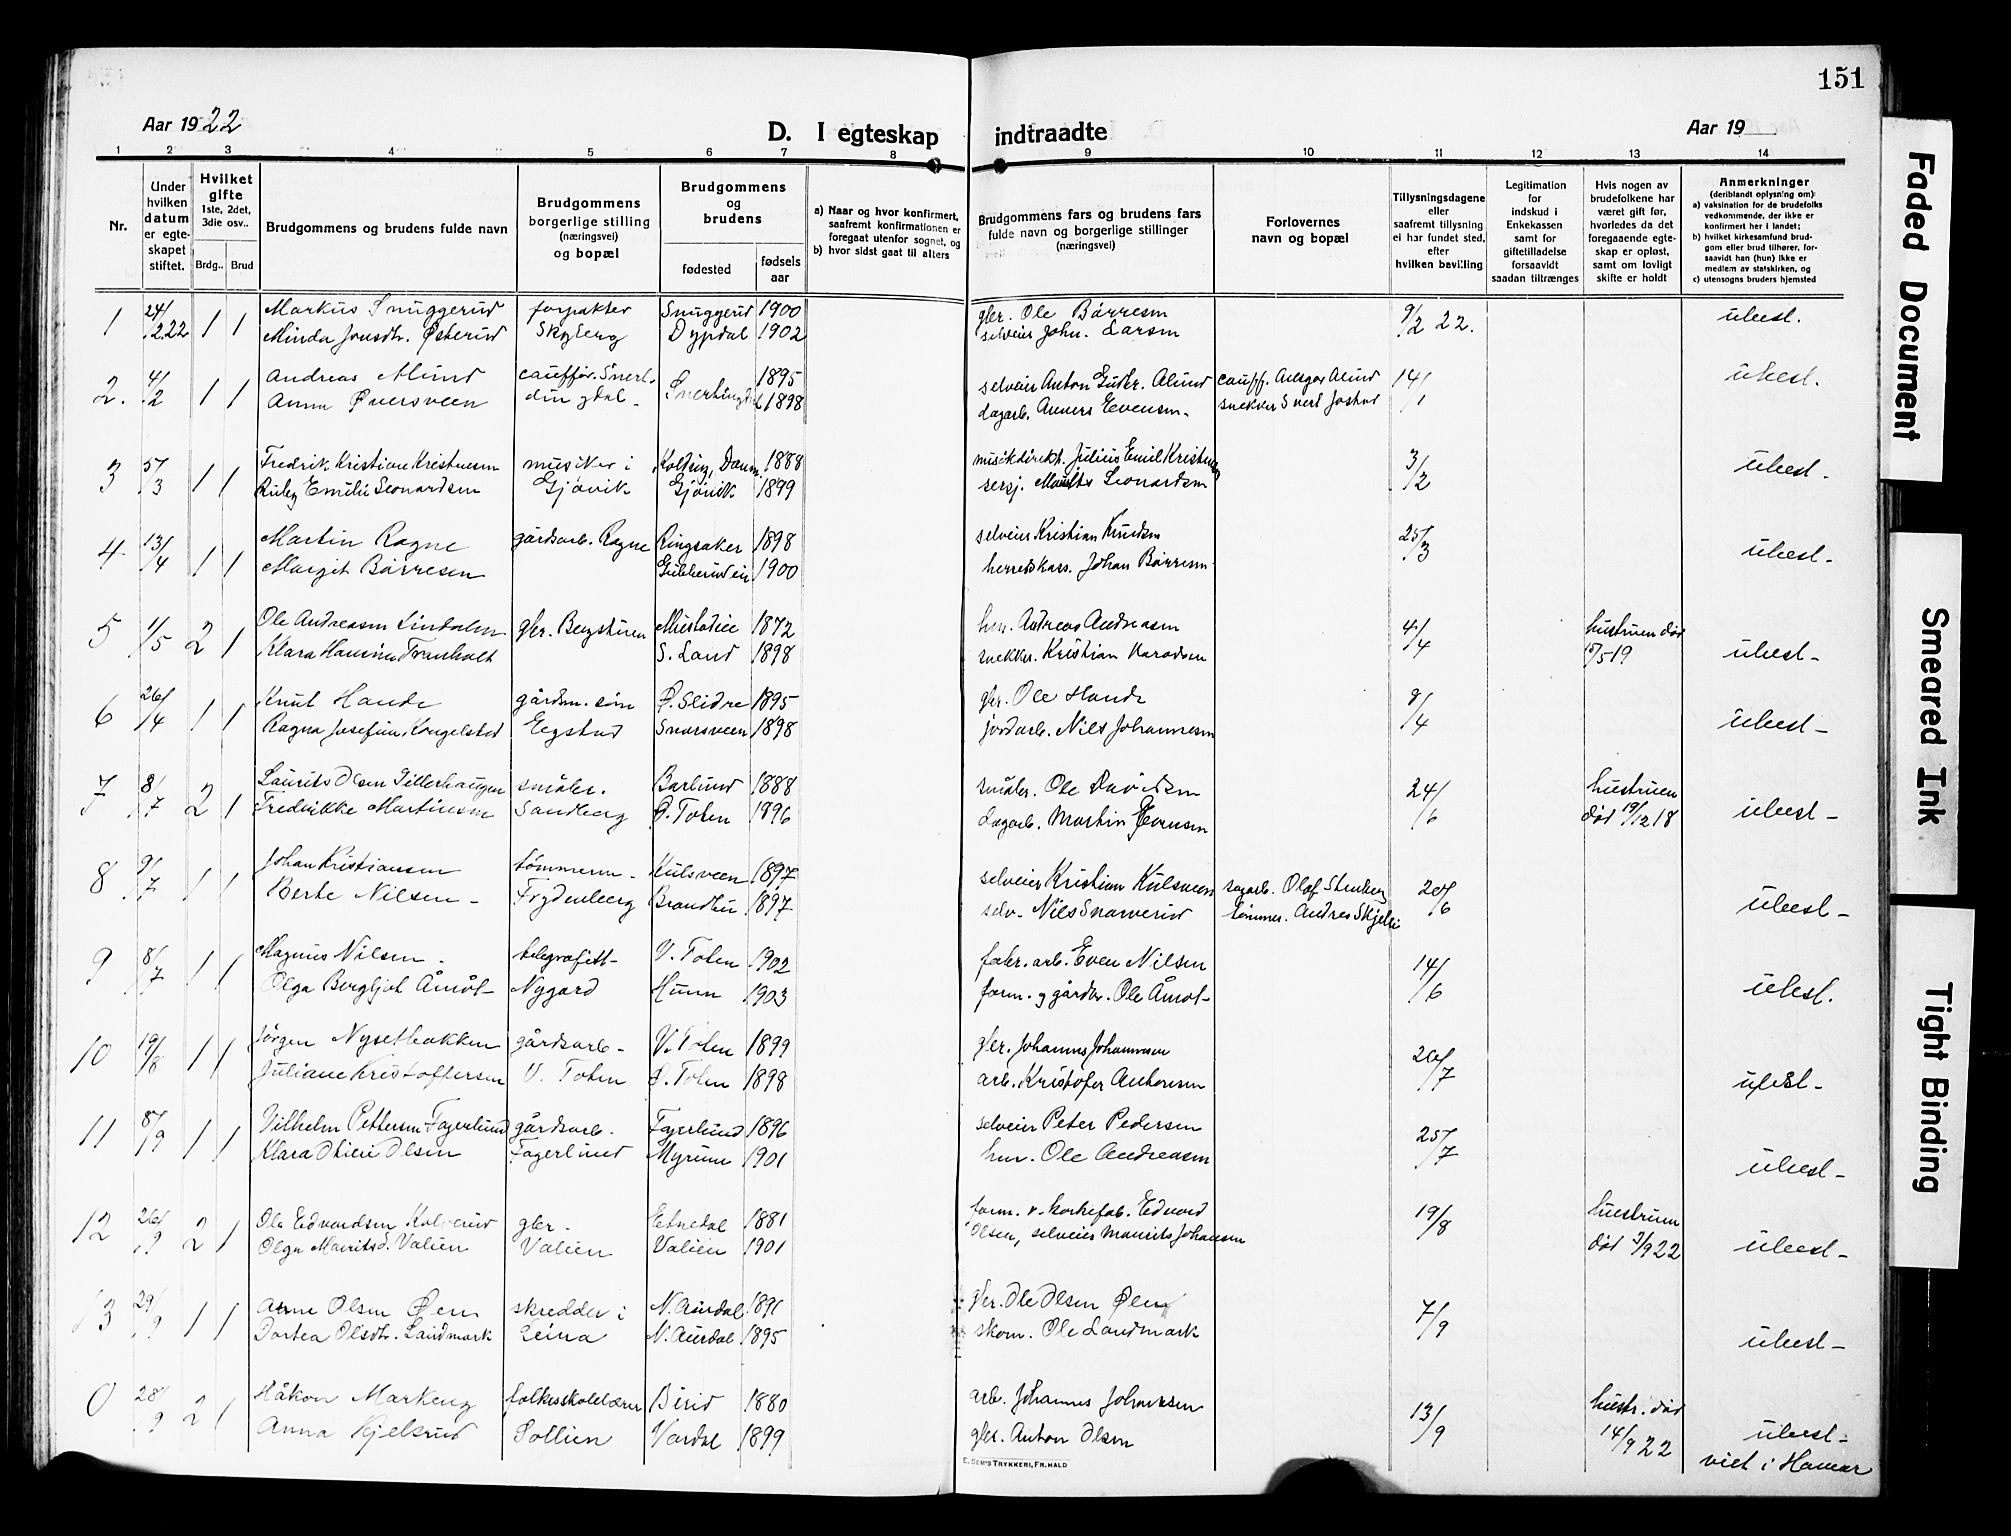 151
Aar 1922
D. I egteskap indtraadte
Aar 19
1 2 3 4 5 6 7 8 9 10 11 12 13 14
Nr.
Under hvilken datum er egteskapet stiftet.
Hvilket gifte 1ste, 2det, 3die osv..
Brdg.. Brud
Brudgommens og brudens fulde navn
Brudgommens borgerlige stilling (næringsvei) og bopæl
Brudgommens og brudens
fødested
fødsels aar
a) Naar og hvor konfirmert, saafremt konfirmationen er foregaat utenfor sognet, og
b) hvor sidst gaat til alters
Brudgommens fars og brudens fars fulde navn og borgerlige stillinger (næringsvei)
Forlovernes navn og bopæl
Tillysningsdagene eller saafremt tillysning ei har fundet sted, efter hvilken bevilling
Legitimation for indskud i Enkekassen samt for giftetilladelse forsaavidt saadan tiltrænges
Hvis nogen av brudefolkene har været gift før, hvorledes da det foregaaende egteskap er opløst, samt om lovligt skifte er holdt
Anmerkninger
(deriblandt oplysning om):
a) vaksination for de brudefolks vedkommende, der ikke er konfirmert her i landet;
b) hvilket kirkesamfund brudgom eller brud tilhører, forsaavidt han (hun) ikke er medlem av statskirken, og
c) utensogns bruders hjemsted
1 24/2 22 1 1 Markus Snuggerud forpakter Snuggerud 1900 gbr. Ole Børresen 9/2 22. ubest.
Minda Jonsdtr. Østerud Skyberg Dypdal 1902 selveier John. Larsen
2. 4/2 1 1 Andreas Alund 1895 selveier Anton Gudbr. Alund 14/1 ubest.
Anna Øversveen Snertingdal 1898 dagarb. Anners Evensen
3 5/3 1 1 Fredrik Kristian Kristensen musiker i Kolding, Danm. 1888 musikdirekt. Julius Emil Kristensen 3/2 ubest.
Ruby Emilie Leonardsen Gjøvik Gjøvik 1899 sersj. Leonardsen
4 13/4 1 1 Martin Ragne gårdsarb. Ragne Ringsaker 1898 selveier Kristian Knudsen 25/3 ubest.
Margit Børresen 1900 herredskass. Johan Børresen
5 1/5 2 1 Ole Andreasen Lindalen gbr. 1872 Andreas Andreasen 4/4 hustruen død ubest.
Klara Hansine Tranholt S. Land 1898 snekker. Kristian 15/5 19
6 26/4 1 1 Knut Hande gårdm. søn Ø. Slidre 1895 gbr. Ole Hande 8/4 ubest.
Ragna Josefine Kongelstad Snarsveen 1898 jordarb. Nils Johannesen
7 8/7 2 1 Laurits Olsen småbr. Barlund 1888 småbr. Ole Davidsen 24/6 hustruen ubest.
Fredrikke Martinsen Sandberg Ø. Toten 1896 dagarb. Martin død 19/12 18
8 9/7 1 1 Johan Kristiansen tømmerm. Kulsveen 1897 selveier Kristian Kulsveen sagarb. Olaf Stenberg 20/6 ubest.
Berte Nilsen Frydenberg Brandbu 1897 selv. Nils tømmer.
9 8/7 1 1 Magnus Nilsen telegrafist V. Toten 1902 fabr. arb. Even Nilsen 14/6 ubest.
Olga Bergljot Åmot Nygard Hunn 1903 form. og gårdbr. Ole Åmot
10 19/8 1 1 Jørgen Nysetbakken gårdsarb. V. Toten 1899 gbr. Johannes Johannesen 20/7 ubest.
Juliane Kristoffersen V. Toten Ø. Toten 1898 arb. Kristofer Antonsen
11 8/9 1 1 Vilhelm Pettersen Fagerlund gårdsarb. Fagerlund 1896 selveier Peter Pedersen 25/7 ubest.
Klara Olsen Fagerlund 1901 Ole Andreasen
12 26/9 2 1 Ole Edvardsen Kolverud gbr. Etnedal 1881 form. v. korkefab. Edvard 19/8 hustruen ubest.
Olga Mauritsd. Valien Valien Valien 1901 Olsen, selveier Maurits Johansen død 7/9 22
13 29/9 1 1 Arne Olsen Øen skredder i N. Aurdal 1891 gbr. Ole Olsen Øen 7/9 ubest.
Dortea Olsdtr. Landmark Leira N. Aurdal 1895 skom. Ole Landmark
0 28/9 2 1 Håkon Markeng folkeskolelærer Birid 1880 arb. Johannes Johannesen 13/9 hustr. død ubest.
Anna Kjelsrud Sollien Vardal 1899 gbr. Anton Olsen 14/9 22 viet i Hamar
E. SEM'S TRYKKERI, FR.HALD
Faded Document
Smeared Ink
Tight Binding